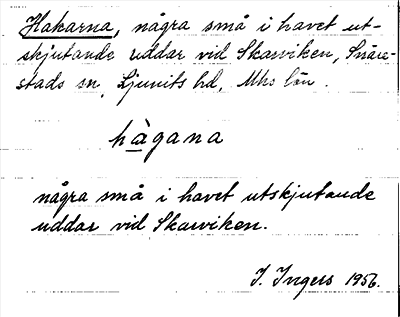 Hakarna, några små i havet ut-
skjutande uddar vid Skarviken, Snåre-
stads sn, Ljunits hd, Mhs län.
hàgana
några små i havet utskjutande
uddar vid Skarviken.
I. Ingers 1956.